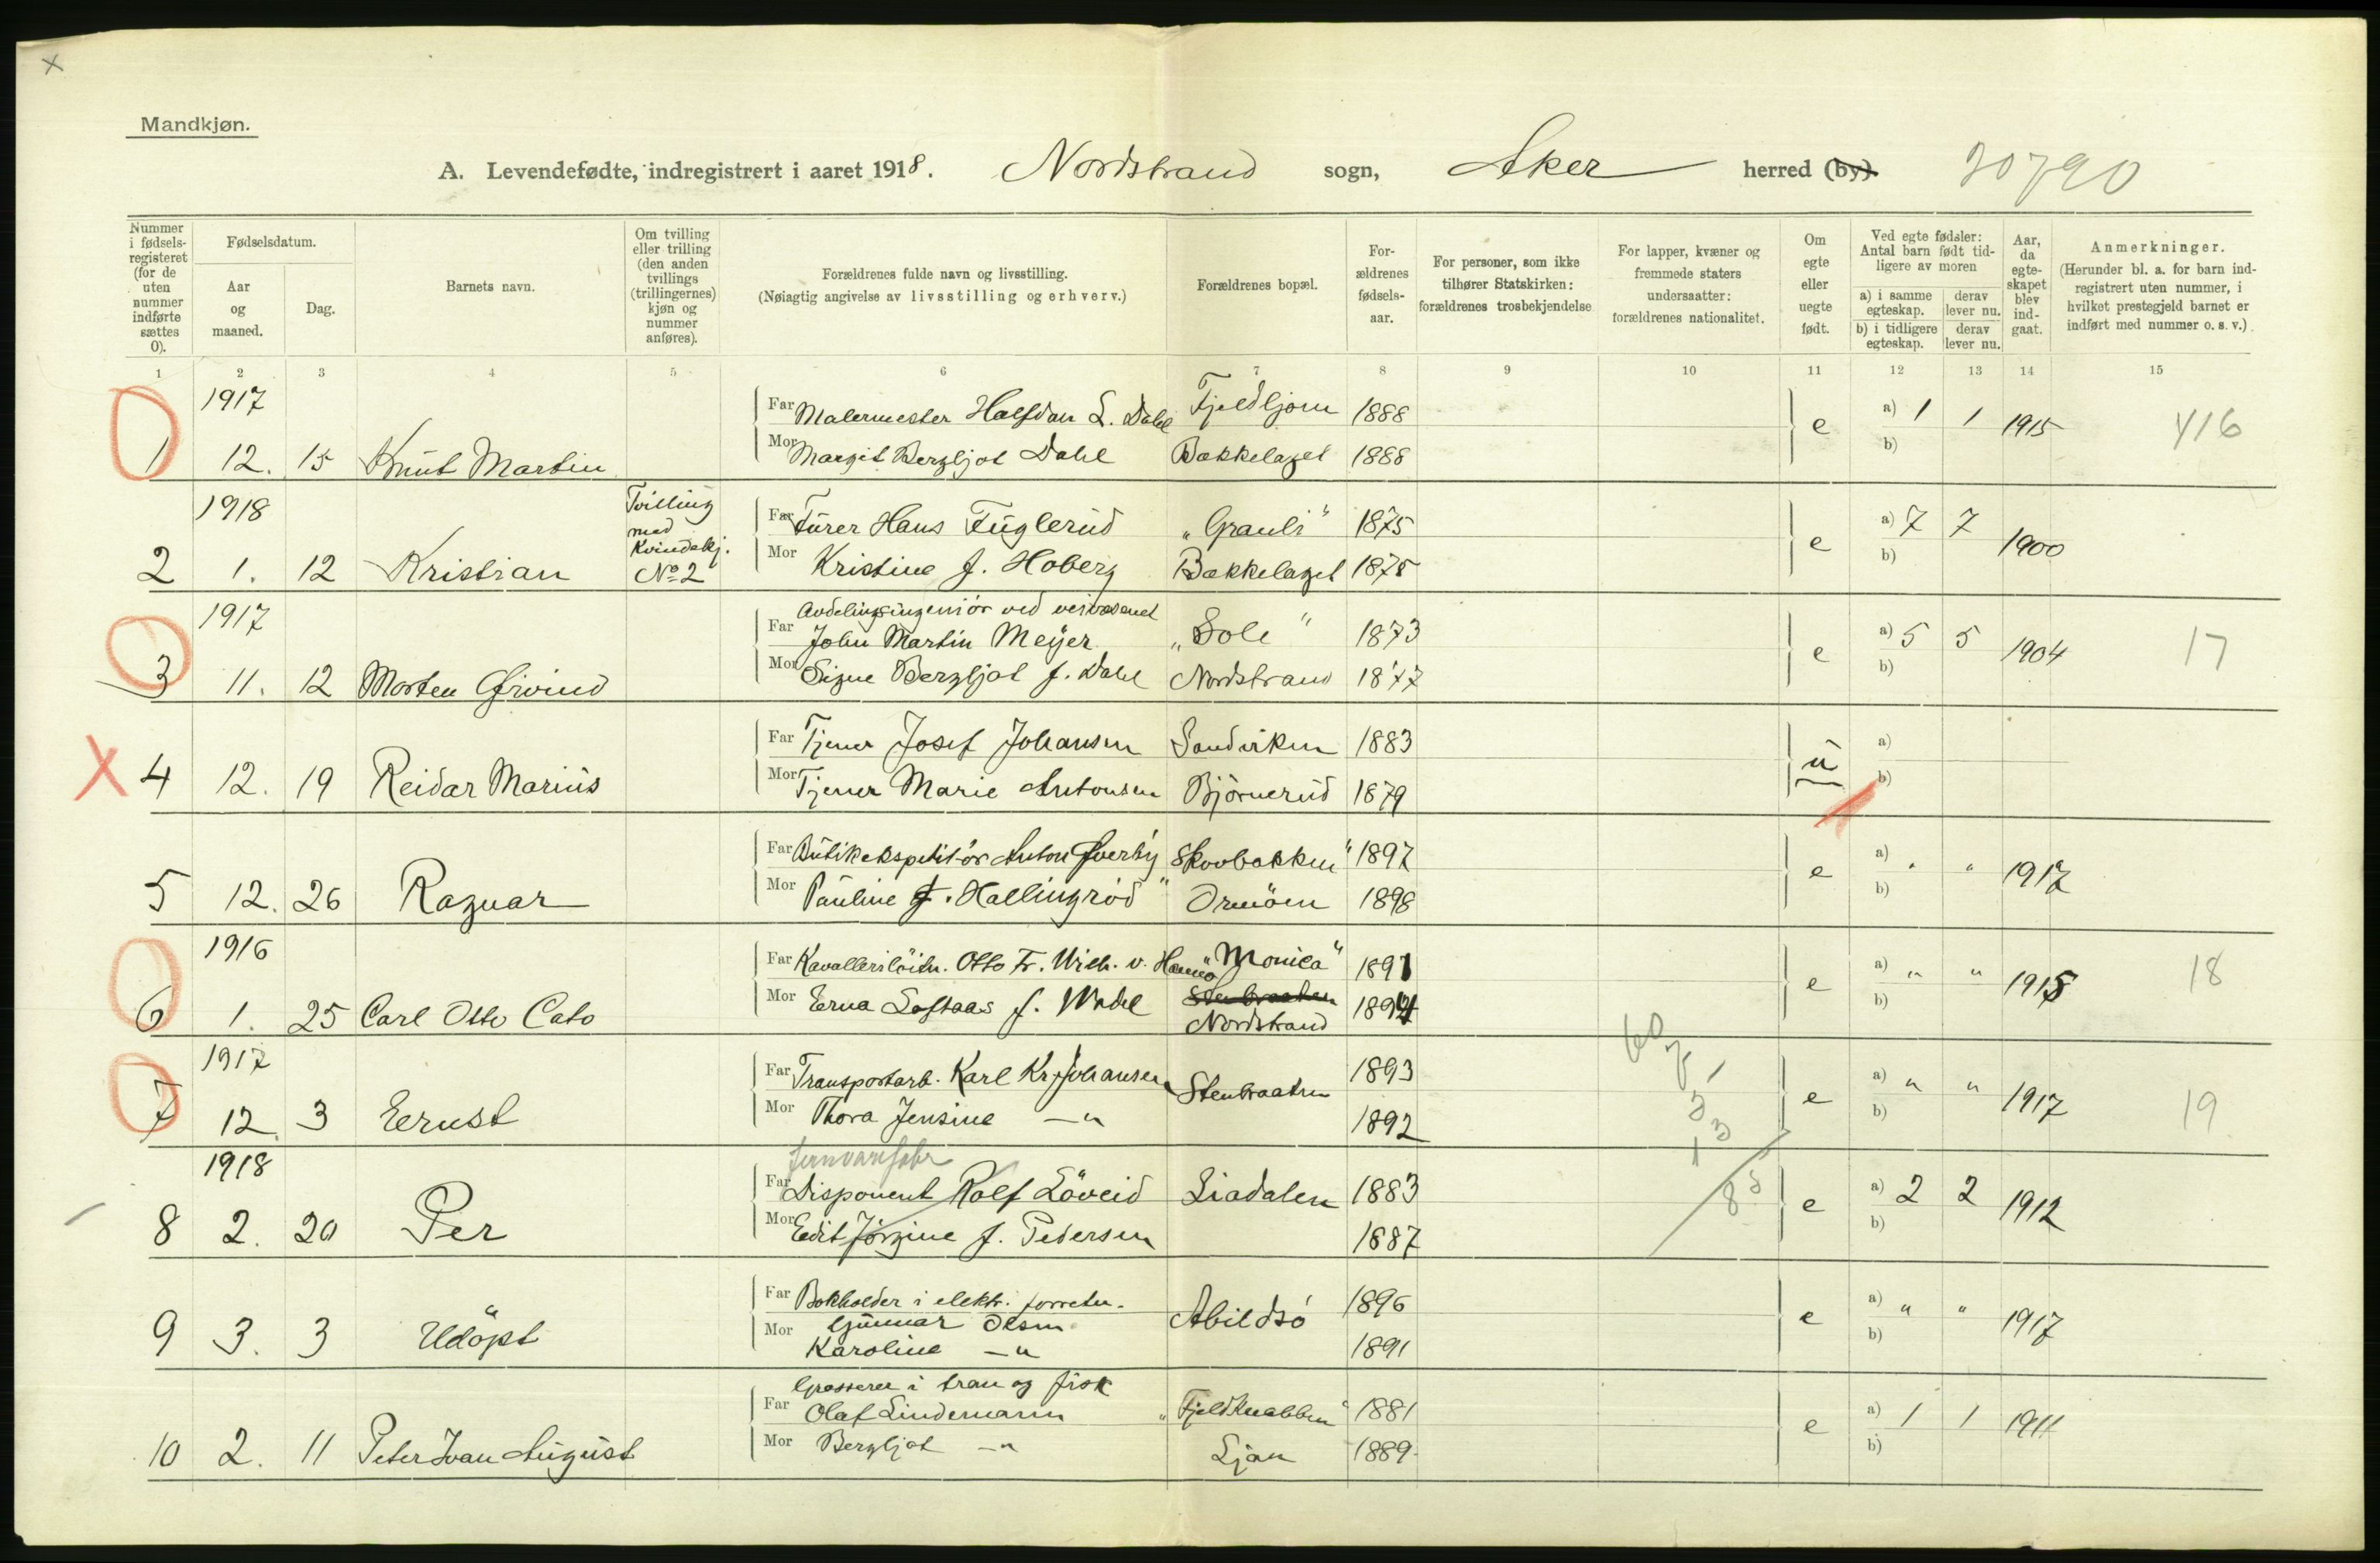 x
Mandkjøn.
A. Levendefødte, indregistrert i aaret 1918. Nordstrand sogn, Aker herred (by). 20790
Nummer i fødsels-registeret (for de uten nummer indførte sættes 0).
Fødselsdatum.
Aar og maaned.
Dag.
Barnets navn.
Om tvilling eller trilling (den anden tvillings (trillingernes) kjøn og nummer anføres).
Forældrenes fulde navn og livsstilling.
(Nøiagtig angivelse av livsstilling og erhverv.)
Forældrenes bopæl.
For-ældrenes fødsels-aar.
For personer, som ikke tilhører Statskirken: forældrenes trosbekjendelse
For lapper, kvæner og fremmede staters undersaatter: forældrenes nationalitet.
Om egte eller uegte født.
Ved egte fødsler: Antal barn født tid-ligere av moren
a) i samme egteskap. derav lever nu.
b) i tidligere egteskap. derav lever nu.
Aar, da egte-skapet blev ind-gaat.
Anmerkninger.
(Herunder bl. a. for barn ind-registrert uten nummer, i hvilket prestegjeld barnet er indført med nummer o. s. v.)
1 2 3 4 5 6 7 8 9 10 11 12 13 14 15
1917
Far Malermester Halfdan L. Dahl Fjeldljom 1888
e a) 1 1 1915 416
b)
1 12. 15 Knut Martin Mor Margit Bergljot Dahl Bækkelaget 1888
1918 Tvilling
med
Kvindekj.
No 2
Far Fürer Hans Fuglerud "Grauli" 1875
e a) 7 7 1900
b)
2 1. 12 Kristian Mor Kristine f. Hoberg Bækkelaget 1875
1917
Avdelingsingeniör ved veivæsenet
Far John Martin Meyer "Sole" 1873
e a) 5 5 1904 17
b)
3 11. 12 Morten Øivind Mor Signe Bergljot f. Dahl Nordstrand 1877
Far Tjener Josef Johansen Sandviken 1883
u a)
b)
X 4 12. 19 Reidar Marius Mor Tjener Marie Antonsen Björnerud 1879
Far Butikekspeditör Anton Øverby Skovbakken" 1897
e a) " " 1917
b)
5 12. 26 Ragnar Mor Pauline f. Hallingrød" Ormöen 1898
1916
Far Kavalleriløitn. Otto Fr. Wilh. v. Hanno "Monica" 1891
e a) " " 1915 18
b)
6 1. 25 Carl Otto Cato Mor Erna Loftaas f. Wahl Stenbraaten 1894
Nordstrand
1917
Far Transportarb. Karl Kr. Johansen Stenbraaten 1893
e a) " " 1917 19
b)
7 12. 3 Ernst Mor Thora Jensine —" 1892
1918
Far Disponent Rolf Löveid Liadalen 1883
e a) 2 2 1912
b)
8 2. 20 Per Mor Edit Jörgine f. Pedersen 1887
Far Bokholder i elektr. forretn.
Gunnar Olsen Abildsö 1896
e a) " " 1917
b)
9 3. 3 Udöpt Mor Karoline —" 1891
Grosserer i tran og fisk
Far Olaf Lindemann "Fjeldknabben" 1881
e a) 1 1 1911
b)
10 2. 11 Peter Ivan August Mor Bergljot —" Ljan 1889